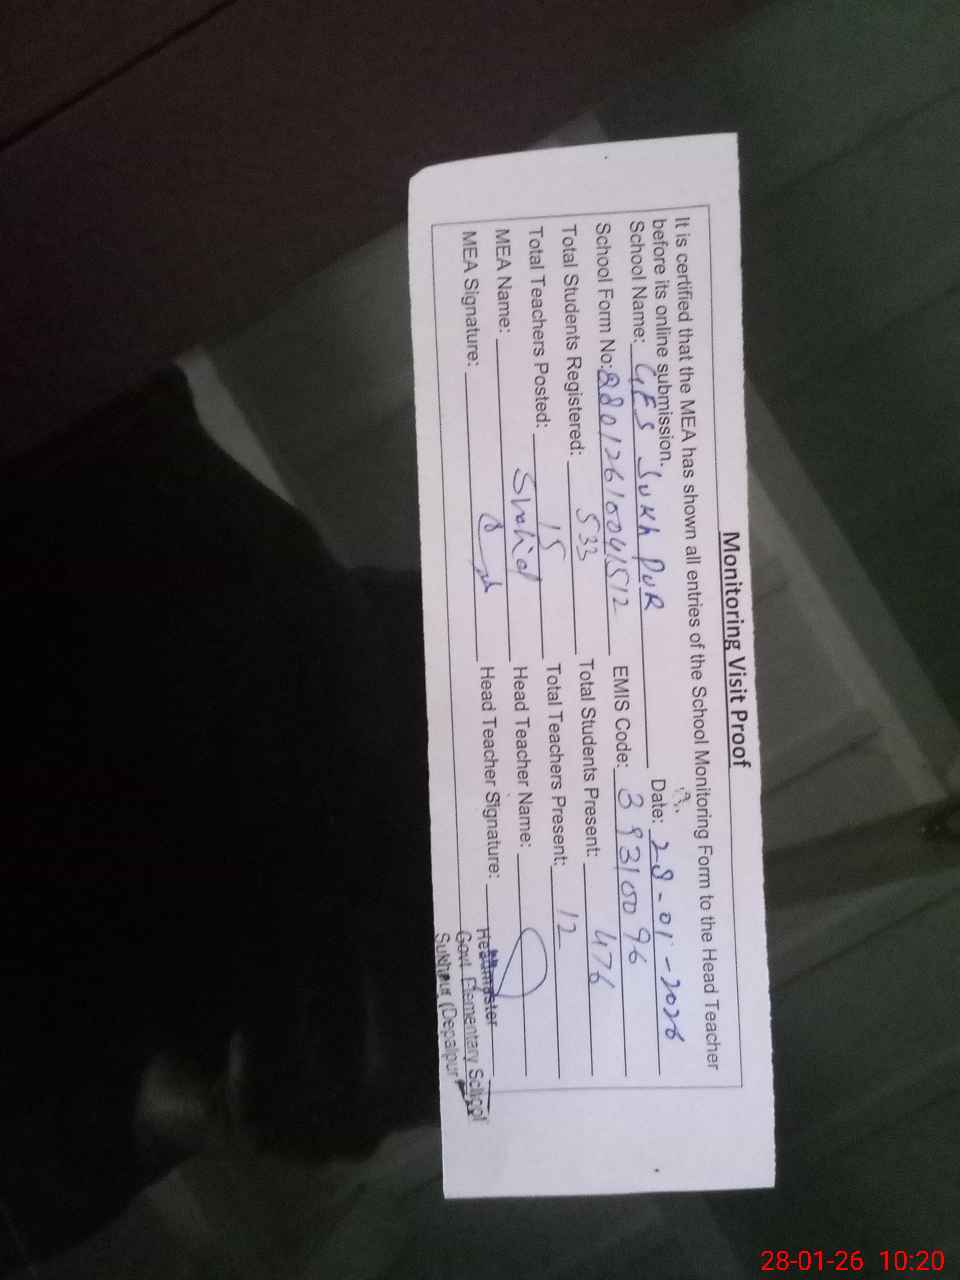 Monitoring Visit Proof
It is certified that the MEA has shown all entries of the School Monitoring Form to the Head Teacher
before its online submission.
School Name: GES SUKh PUR Date: 28-01-2026
School Form No: 28012610041512 EMIS Code: 39310096
Total Students Registered: 533 Total Students Present: 476
Total Teachers Posted: 15 Total Teachers Present: 12
MEA Name: Shahid Head Teacher Name:
MEA Signature: Head Teacher Signature:
Headmaster
Govt. Elementary School
Sukhpur (Depalpur)
28-01-26 10:20